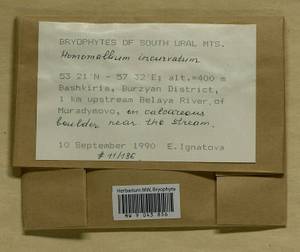 BRYOPHYTES OF SOUTH URAL MTS.
Homomallium incurvatum
53 21 N - 57 32 E; alt.=400 m
Bashkiria, Burzyan District,
1 km upstream Belaya River, of
Muradymovo, on calcareous
boulder near the stream.
10 September 1990 E.Ignatova
# 11/136
Herbarium MW, Bryophyta
MW 9 043 856